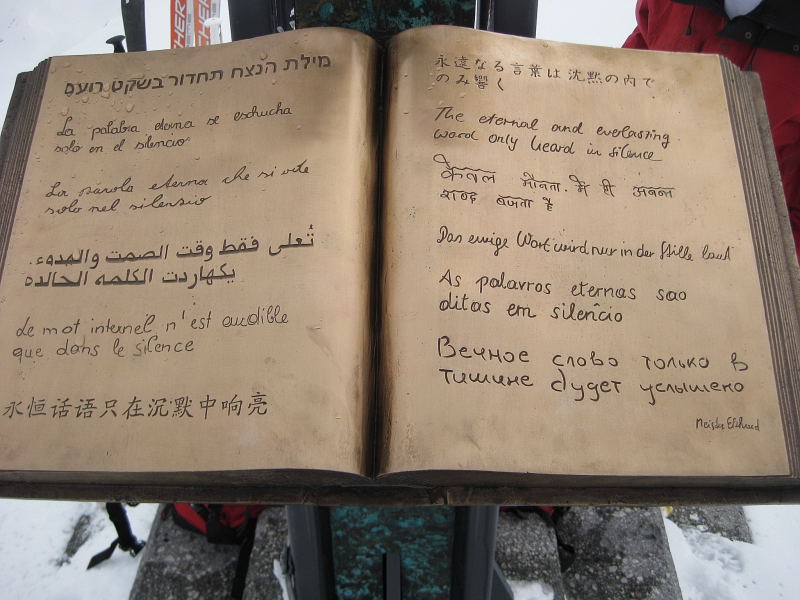 FISCHER
מילת הנצח תחדור בשקט רועם
La palabra eterna se eschucha
solo en el silencio
La parola eterna che si ode
solo nel silensio
تُعلى فقط وقت الصمت والهدوء.
يكهاردت الكلمه الخالده
de mot internel n'est audible
que dans le silence
永恒话语只在沉默中响亮
永遠なる言葉は沈黙の内で
のみ響く
The eternal and everlasting
word only heard in silence
केवल मौनता में ही
शब्द बजता है
Das ewige Wort wird nur in der Stille laut
As palavros eternas sao
ditas em silêncio
Вечное слово только в
тишине будет услышено
Meister Eckhard